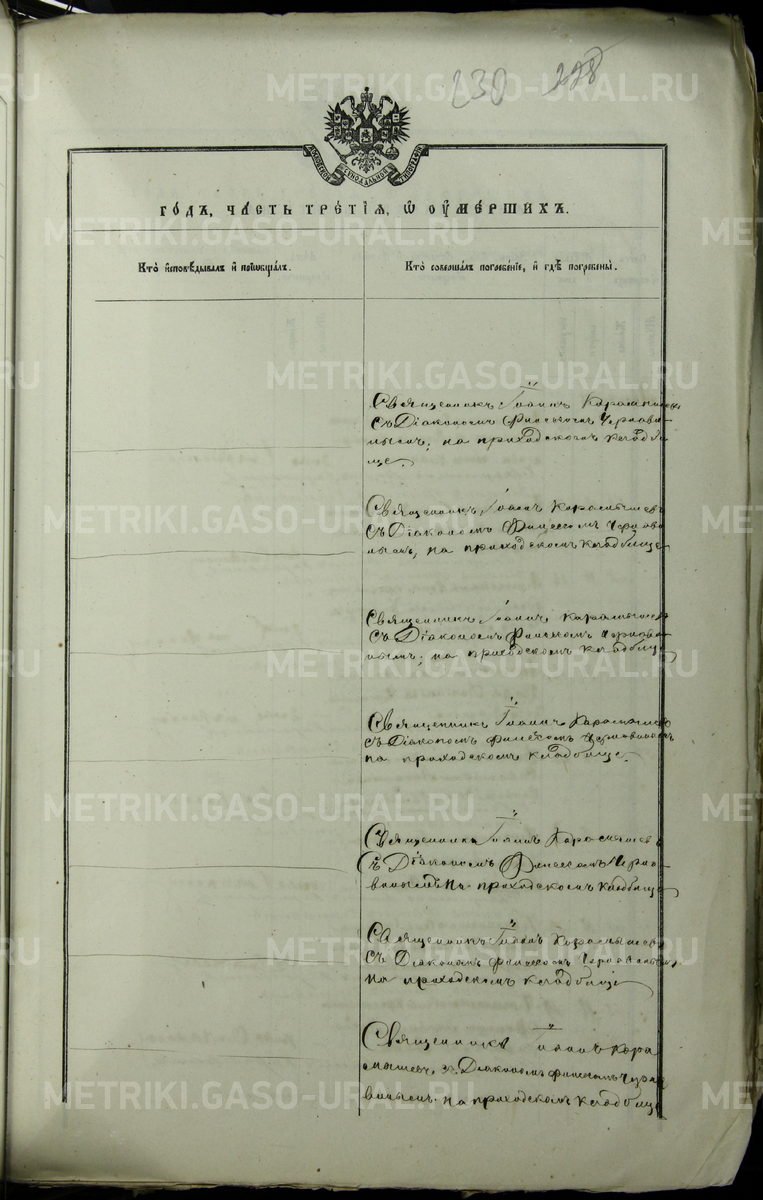 230 228
МОСКОВСКОЙ СУНОДАЛЬНОЙ ТИПОГРАФІИ
ГО́ДЪ, ЧА́СТЬ ТРЕ́ТІѦ, Ѡ҆ ОУ҆МЕ́РШИХЪ.
Кто̀ и҆сповѣ́дывалъ и҆ прїѡбща́лъ.
Кто̀ соверша́лъ погребе́нїе, и҆ гдѣ̀ погребены̀.
Священникъ Іоаннъ Карамышевъ
съ Діакономъ Финеесомъ Чернави
нымъ; на приходскомъ кладби
ще.
Священникъ Іоаннъ Карамышевъ
съ Діакономъ Финеесомъ Черново
нымъ, на приходскомъ кладбище
Священникъ Іоаннъ Карамышевъ
съ Діакономъ Финеесомъ Чернова
нымъ; на приходскомъ кладбище
Священникъ Іоаннъ Карамышевъ
съ Діакономъ Финеесомъ Черновинымъ
на приходскомъ кладбище.
Священникъ Іоаннъ Карамышевъ
съ Діакономъ Финеесомъ Черно
винымъ на приходскомъ кладбище
Священникъ Іоаннъ Карамышевъ
съ Діакономъ Финеесомъ Черновинымъ
на приходскомъ кладбище
Священникъ Іоаннъ Кара
мышевъ, съ Діакономъ Финеесомъ Черна
винымъ на приходскомъ кладбище
METRIKI.GASO-URAL.RU